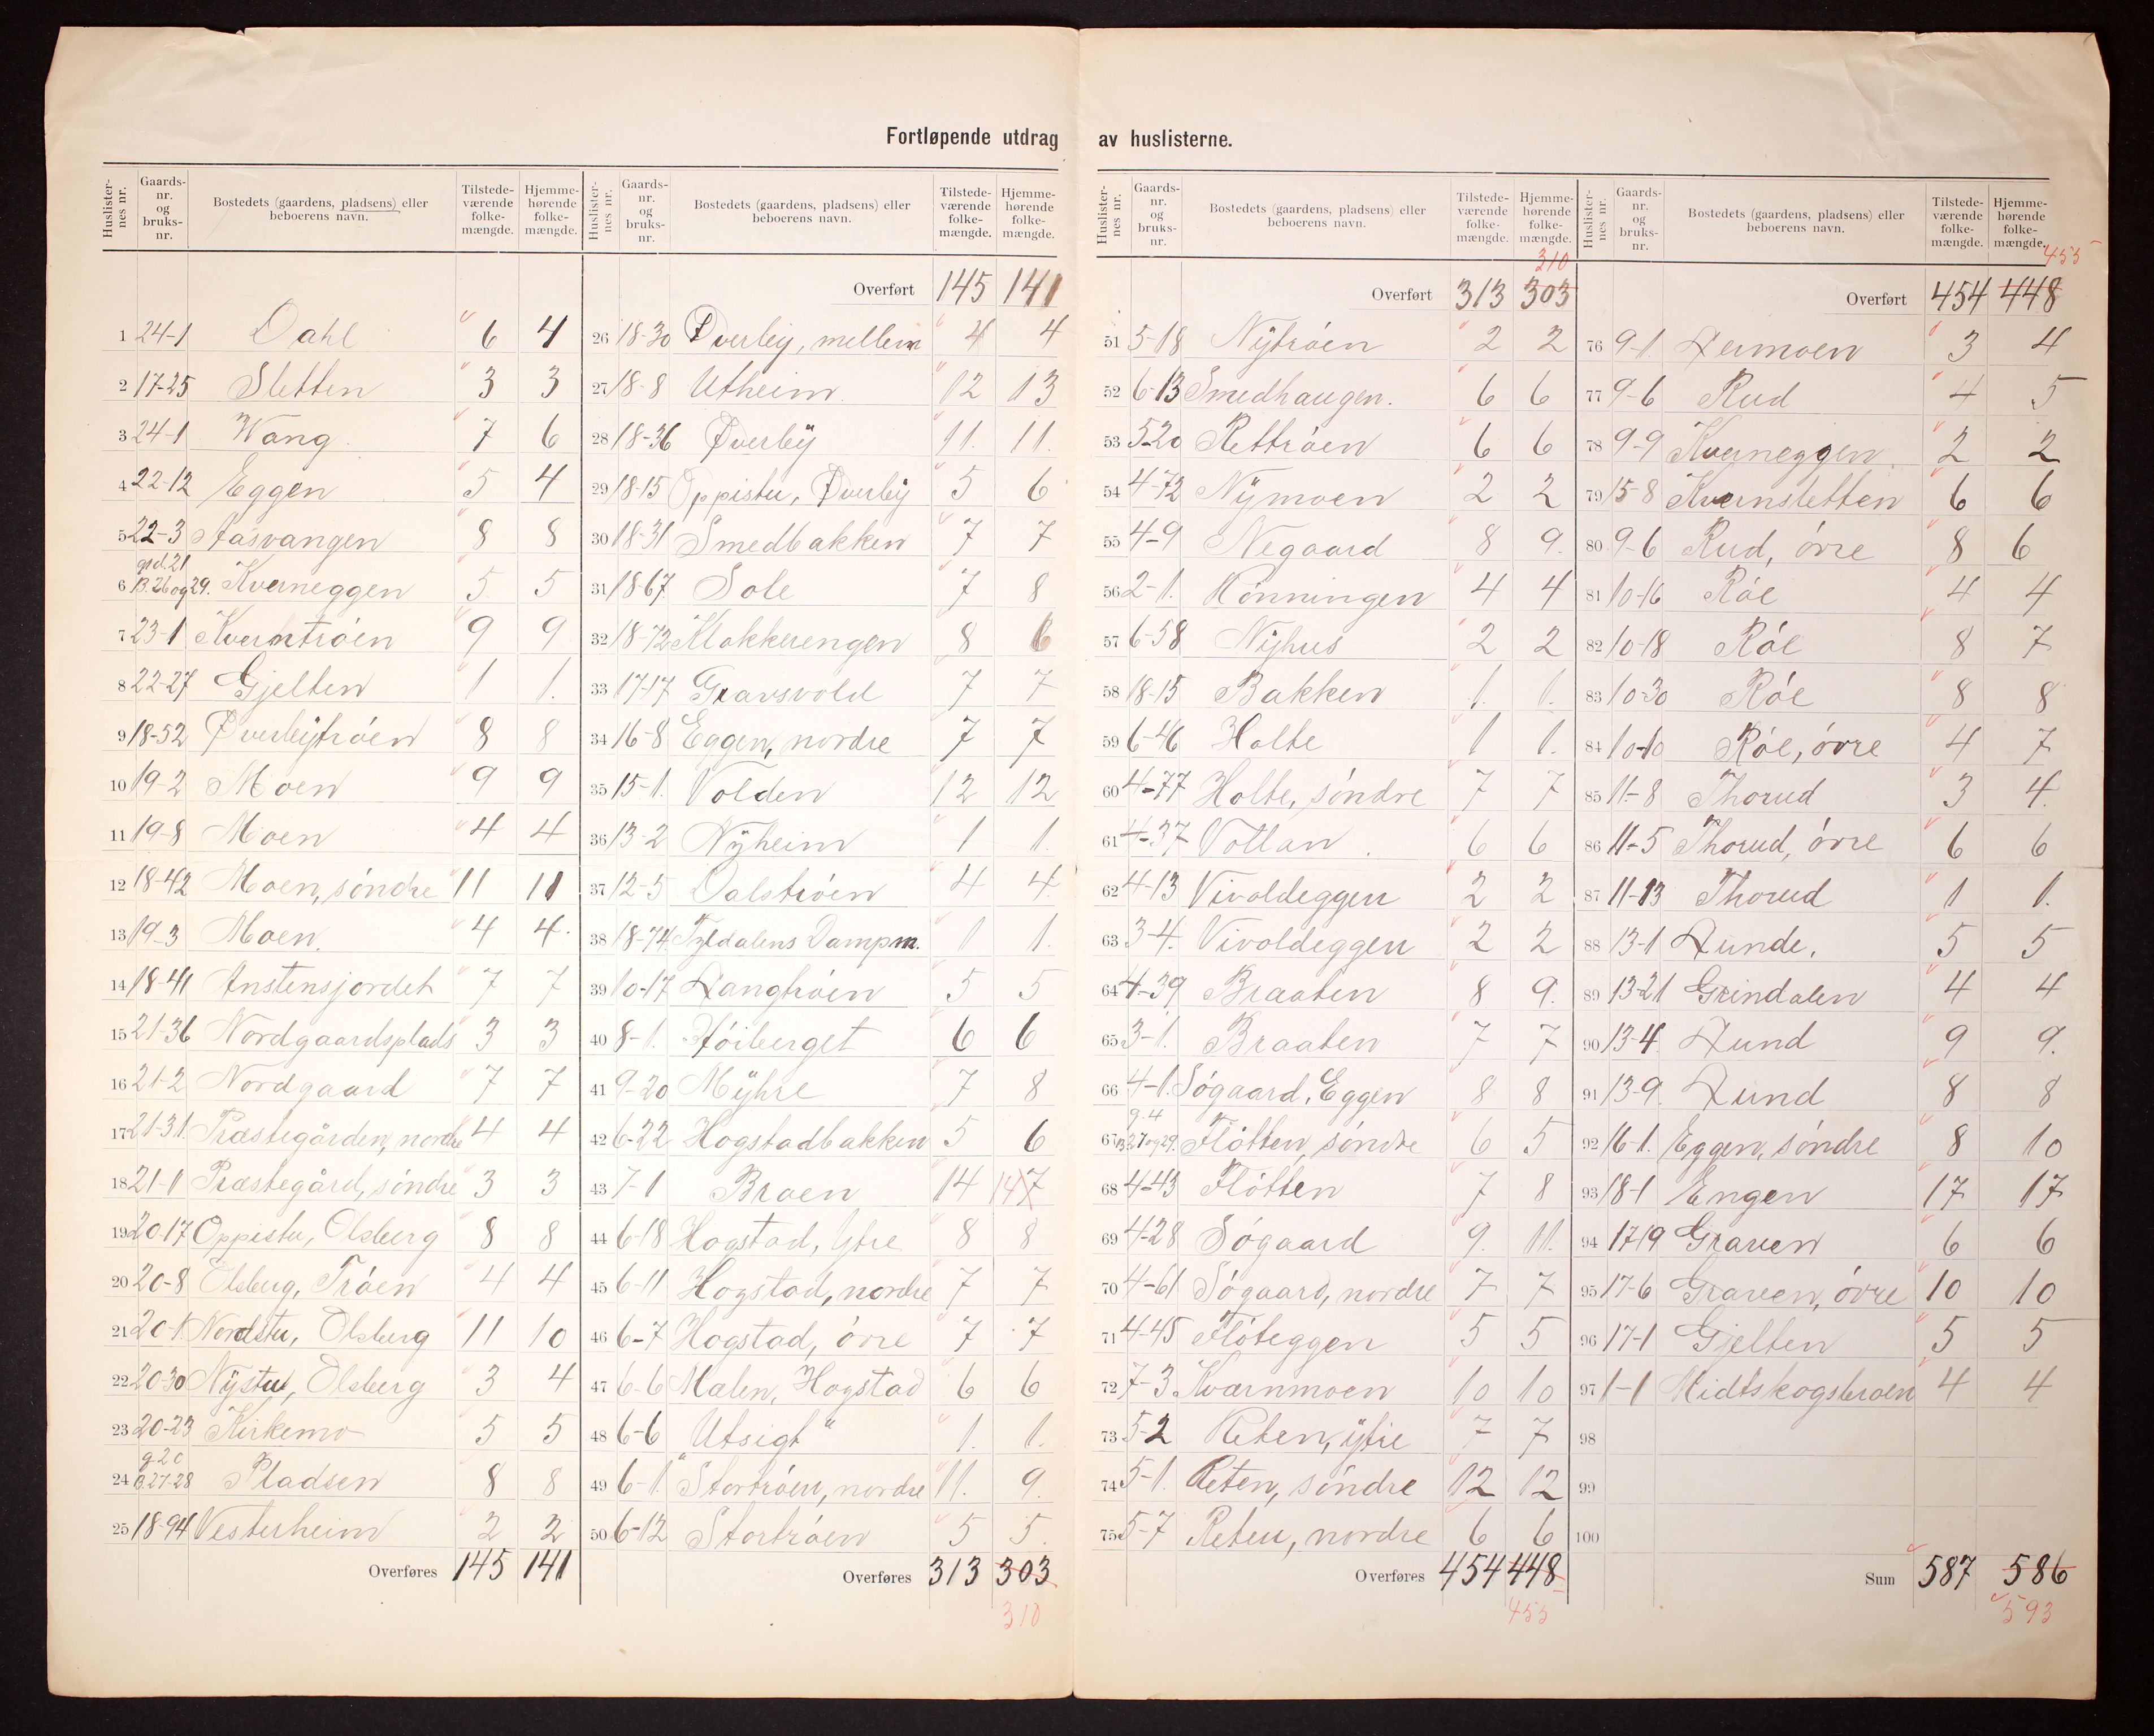 Fortløpende utdrag av huslisterne.
Huslister-nes nr. Gaards-nr. og bruks-nr. Bostedets (gaardens, pladsens) eller beboerens navn. Tilstede-værende folke-mængde. Hjemme-hørende folke-mængde.
1 24-1 Dahl 6 4
2 17-25 Sletten 3 3
3 24-1 Wang. 7 6
4 22-12 Eggen 5 4
5 22-3 Aasvangen 8 8
6 grd. 21 B. 26 og 29. Kverneggen 5. 5
7 23-1 Kverntrøen 9 9
8 22-27 Gjelten 1 1.
9 18-52 Øverbytrøen 8 8
10 19-2 Moen 9 9
11 19-8 Moen 4 4
12 18-42 Moen, søndre 11 11
13 19-3 Moen. 4 4.
14 18-41 Anstensjordet 7 7
15 21-36 Nordgaardsplads 3 3
16 21-2 Nordgaard 7 7
17 21-31. Præstegården, nordre 4 4
18 21-1 Præstegård, søndre 3 3
19 20-17 Oppistu, Elsberg 8 8
20 20-8 Elsberg, Trøen 4 4
21 20-1. Nordstu, Elsberg 11 10
22 20-30 Nystu, Elsberg 3 4
23 20-23 Kirkemo 5 5
24 g 20 B. 27-28 Pladsen 8 8
25 18-94 Vesterheim 2 2
Overføres 145 141
Huslister-nes nr. Gaards-nr. og bruks-nr. Bostedets (gaardens, pladsens) eller beboerens navn. Tilstede-værende folke-mængde. Hjemme-hørende folke-mængde.
Overført 145 141
26 18-30 Øverby, mellem 4 4
27 18-8 Utheim. 12 13
28 18-36 Øverby 11. 11.
29 18-15 Oppistu, Øverby 5 6
30 18-31 Smedbakken 7 7
31 18-67. Sole 7 8
32 18-72 Klokkerengen 8 6
33 17-17 Gravsvold 7 7
34 16-8 Eggen, nordre 7 7
35 15-1. Volden 12 12
36 13-2 Nyheim 1 1.
37 12-5 Dalstrøen 4 4.
38 18-74. Tyldalens Dampm. 1 1.
39 10-17 Langtrøen 5 5
40 8-1. Høiberget 6 6
41 9-20 Myhre 7 8
42 6-22 Hogstadbakken 5 6
43 7-1 Broen 14 14 7
44 6-18 Hogstad, Ytre 8 8
45 6-11 Hogstad, nordre 7 7
46 6-7 Hogstad, øvre 7 7
47 6-6 Mælen, Hogstad 6 6
48 6-6 Utsigt " 1. 1.
49 6-1. Stortrøen, nordre 11. 9.
50 6-12 Stortrøen 5 5.
Overføres 313 303
310
Huslister-nes nr. Gaards-nr. og bruks-nr. Bostedets (gaardens, pladsens) eller beboerens navn. Tilstede-værende folke-mængde. Hjemme-hørende folke-mængde.
310
Overført 313 303
51 5-18 Nytrøen 2 2
52 6-13 Smedhaugen. 6 6
53 5-20 Rettrøen 6 6
54 4-72 Nymoen 2 2
55 4-9 Negaard 8 9.
56 2-1. Rønningen 4 4
57 6-58 Nyhus 2 2
58 18-15 Bakken 1. 1.
59 6-46 Holte 1 1.
60 4-77 Holte, søndre 7 7
61 4-37 Vollan. 6 6
62 4-13 Vivoldeggen 2 2
63 3-4. Vivoldeggen 2 2
64 4-39 Braaten 8 9.
65 3-1. Braaten 7 7
66 4-1. Søgaard, Eggen 8 8
67 g. 4 B. 27 og 29. Fløtten, søndre 6 5
68 4-43 Fløtten 7 8
69 4-28 Søgaard 9. 11.
70 4-61 Søgaard, nordre 7 7
71 4-45 Fløteggen 5 5
72 7-3 Kværnmoen 10 10
73 5-2 Reten, ytre 7 7
74 5-1. Reten, søndre 12 12
75 5-7 Reten, nordre 6 6
Overføres 454 448
455
Huslister-nes nr. Gaards-nr. og bruks-nr. Bostedets (gaardens, pladsens) eller beboerens navn. Tilstede-værende folke-mængde. Hjemme-hørende folke-mængde.
455
Overført 454 448
76 9-1. Lermoen 3 4
77 9-6 Rud 4 5
78 9-9 Kverneggen. 2 2
79 15-8 Kvernsletten 6 6
80 9-6 Rud, øvre 8 6
81 10-16 Røe 4 4
82 10-18 Røe 8 7
83 10-30 Røe 8 8
84 10-10 Røe, øvre 4 7
85 11-8 Thorud 3 4.
86 11-5 Thorud, øvre 6 6
87 11-13 Thorud 1 1.
88 13-1 Lunde. 5 5
89 13-21 Grindalen 4 4
90 13-4 Lund 9 9.
91 13-9. Lund 8 8
92 16-1. Eggen, søndre 8 10
93 18-1 Engen 17 17
94 17-19 Graven 6 6
95 17-6 Graven, øvre 10 10
96 17-1 Gjelten 5 5
97 1-1 Midtskogsbroen 4 4
98
99
100
Sum 587 586
593